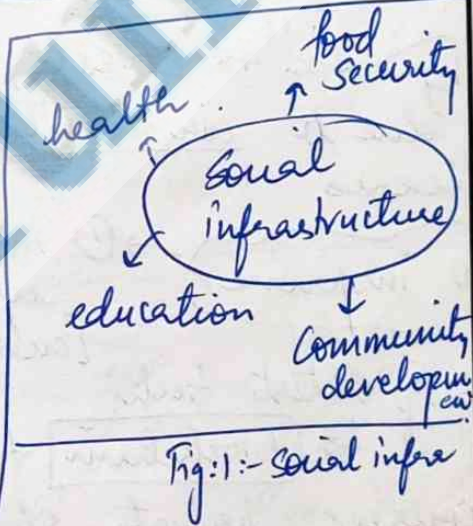 food
security
health
Social
infrastructure
education
Community
developm
ent
Fig:1:- Social infra